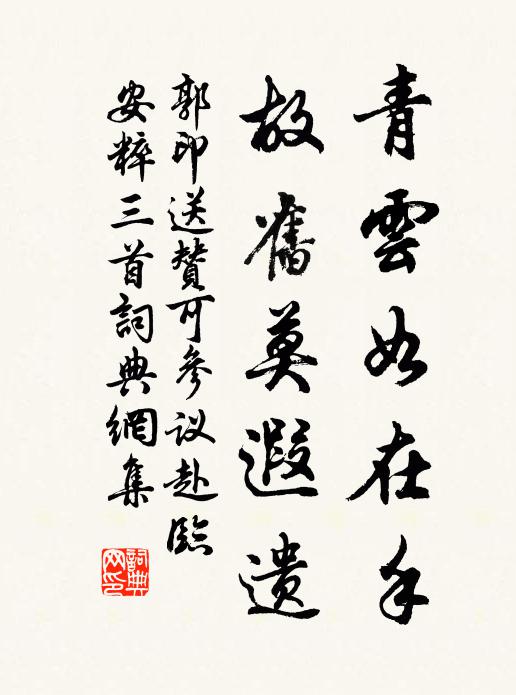 青雲如在手
故舊莫遐遺
郭印送贊可參议赴臨
安粹三首詞典網集
詞典网印